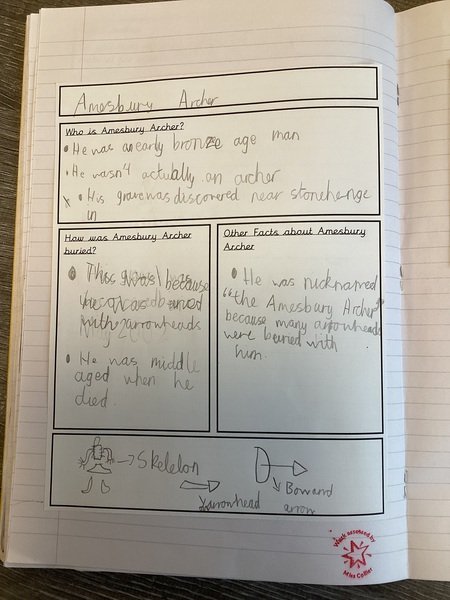 Amesbury Archer
Who is Amesbury Archer?
• He was an early bronze age man
• He wasn't actually an archer
• His grave was discovered near stonehenge
in
How was Amesbury Archer
buried?
• This was because
he was buried
with arrowheads
• He was middle
aged when he
died.
Other Facts about Amesbury
Archer
• He was nicknamed
"the Amesbury Archer"
because many arrowheads
were buried with
him.
Skeleton
arrowhead
Bow and
arrow
Work assessed by
Miss Collier